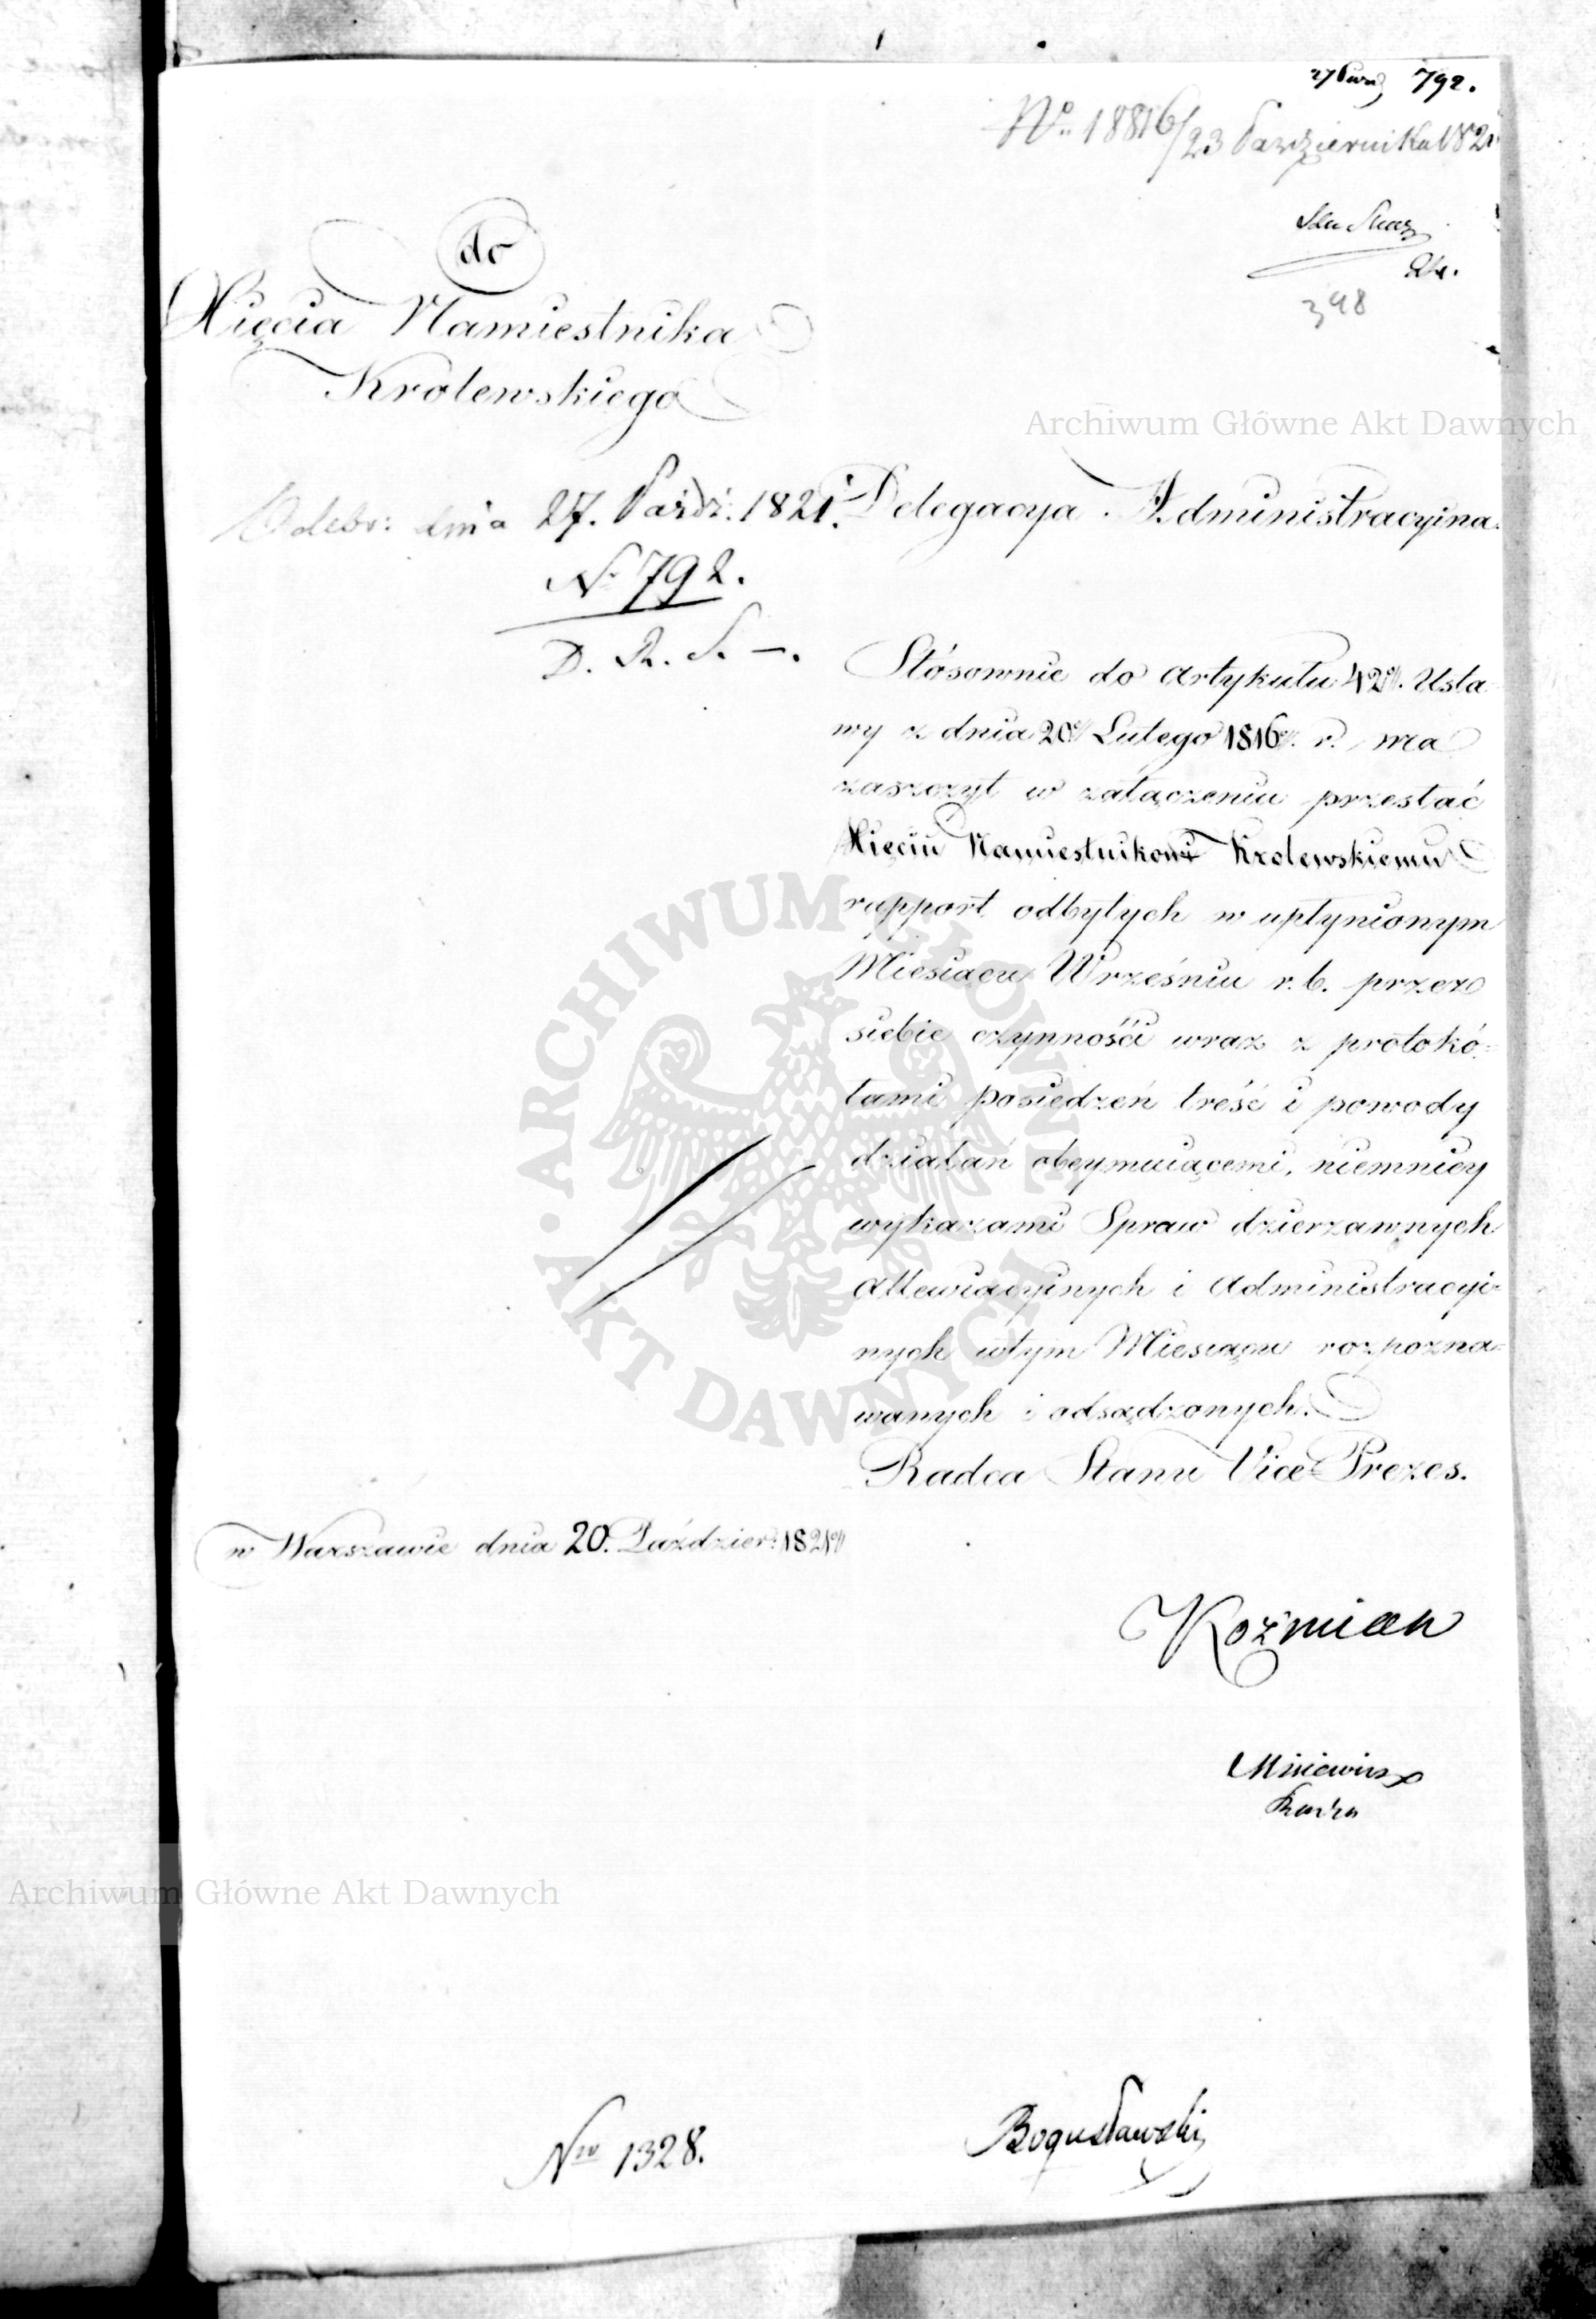 792.
No 18816/23 Października 1821
398
do
Xięcia Namiestnika
Krolewskiego
Archiwum Główne Akt Dawnych
Odebr: dnia 27. Paźdz. 1821.
N. 792.
D. R. S. —.
Delegacya Administracyina.
Stósownie do Artykułu 42go. Usta-
wy z dnia 20go Lutego 1816go. r. ma
zaszczyt w załączeniu przesłać
Xięciu Namiestnikowi Krolewskiemu
rapport odbytych w upłynionym
Miesiącu Wrześniu r.b. przez
siebie czynnośći wraz z protokó-
łami posiedzeń treść i powody
działań obeymuiącemi, niemniey
wykazami Spraw dzierzawnych
Allewiacyinych i Administracyi-
nych wtym Miesiącu rozpozna-
wanych i odsądzonych.
Radca Stanu Vice-Prezes.
w Warszawie dnia 20. Paździer: 1821go
Koźmian
ARCHIWUM GŁÓWNE AKT DAWNYCH
Archiwum Główne Akt Dawnych
Nro 1328.
Bogusławski